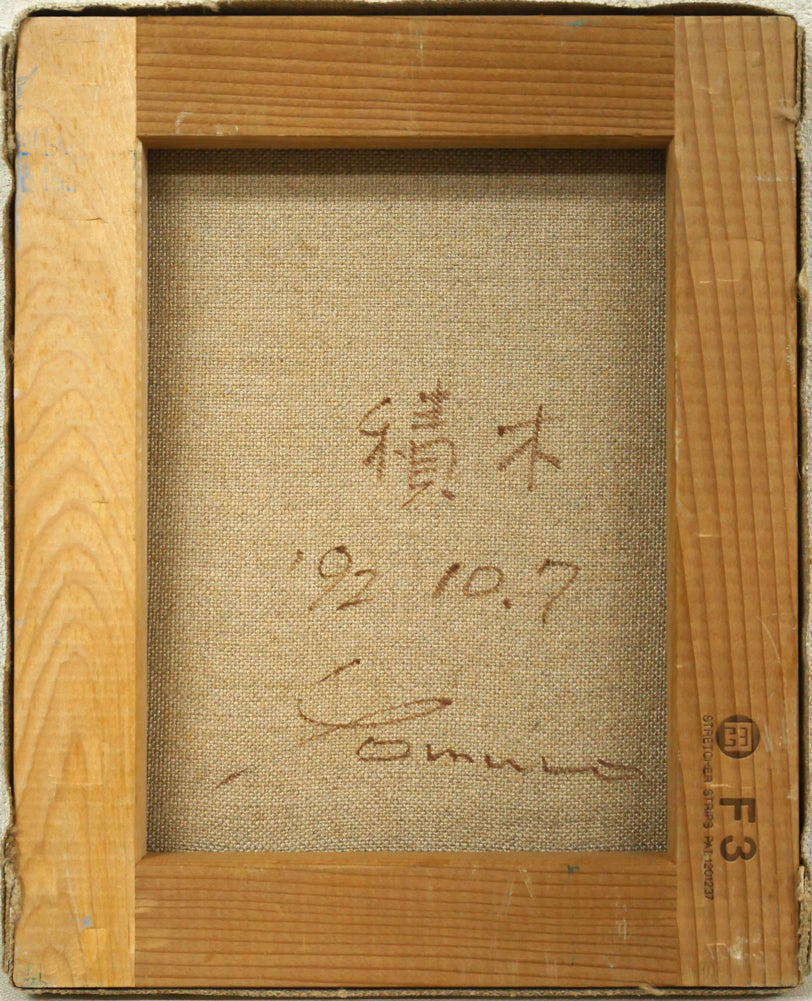 積木
'92 10.7
STRETCHER STRIPS PAT. 1201237
F3